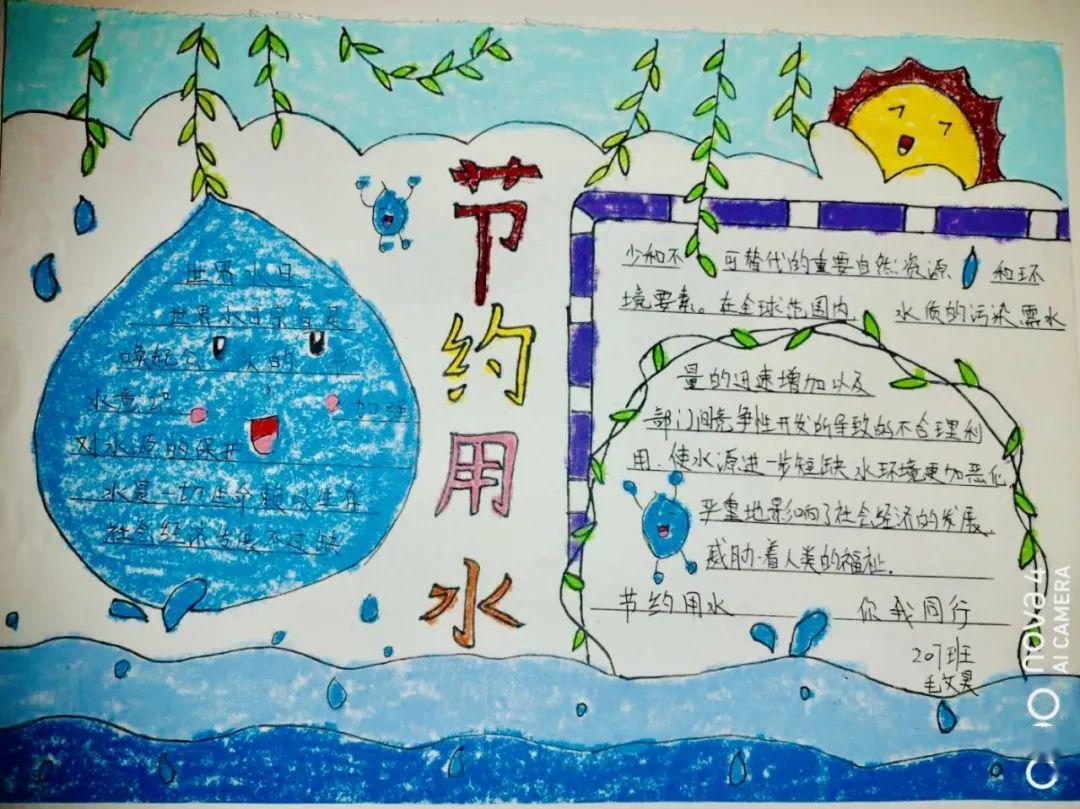 世界水日
世界水日宗旨是
唤起公 众的 节
水意识 加强
对水源的保护
水是一切生命赖以生存
社会经济发展不可缺
节约用水
少和不 可替代的重要自然资源 和环
境要素。在全球范围内 水质的污染需水
量的迅速增加以及
部门间竞争性开发所导致的不合理利
用.使水源进一步短缺 水环境更加恶化
严重地影响了社会经济的发展
威胁着人类的福祉.
节约用水 你我同行
207班
毛文昊
nova 4
AI CAMERA